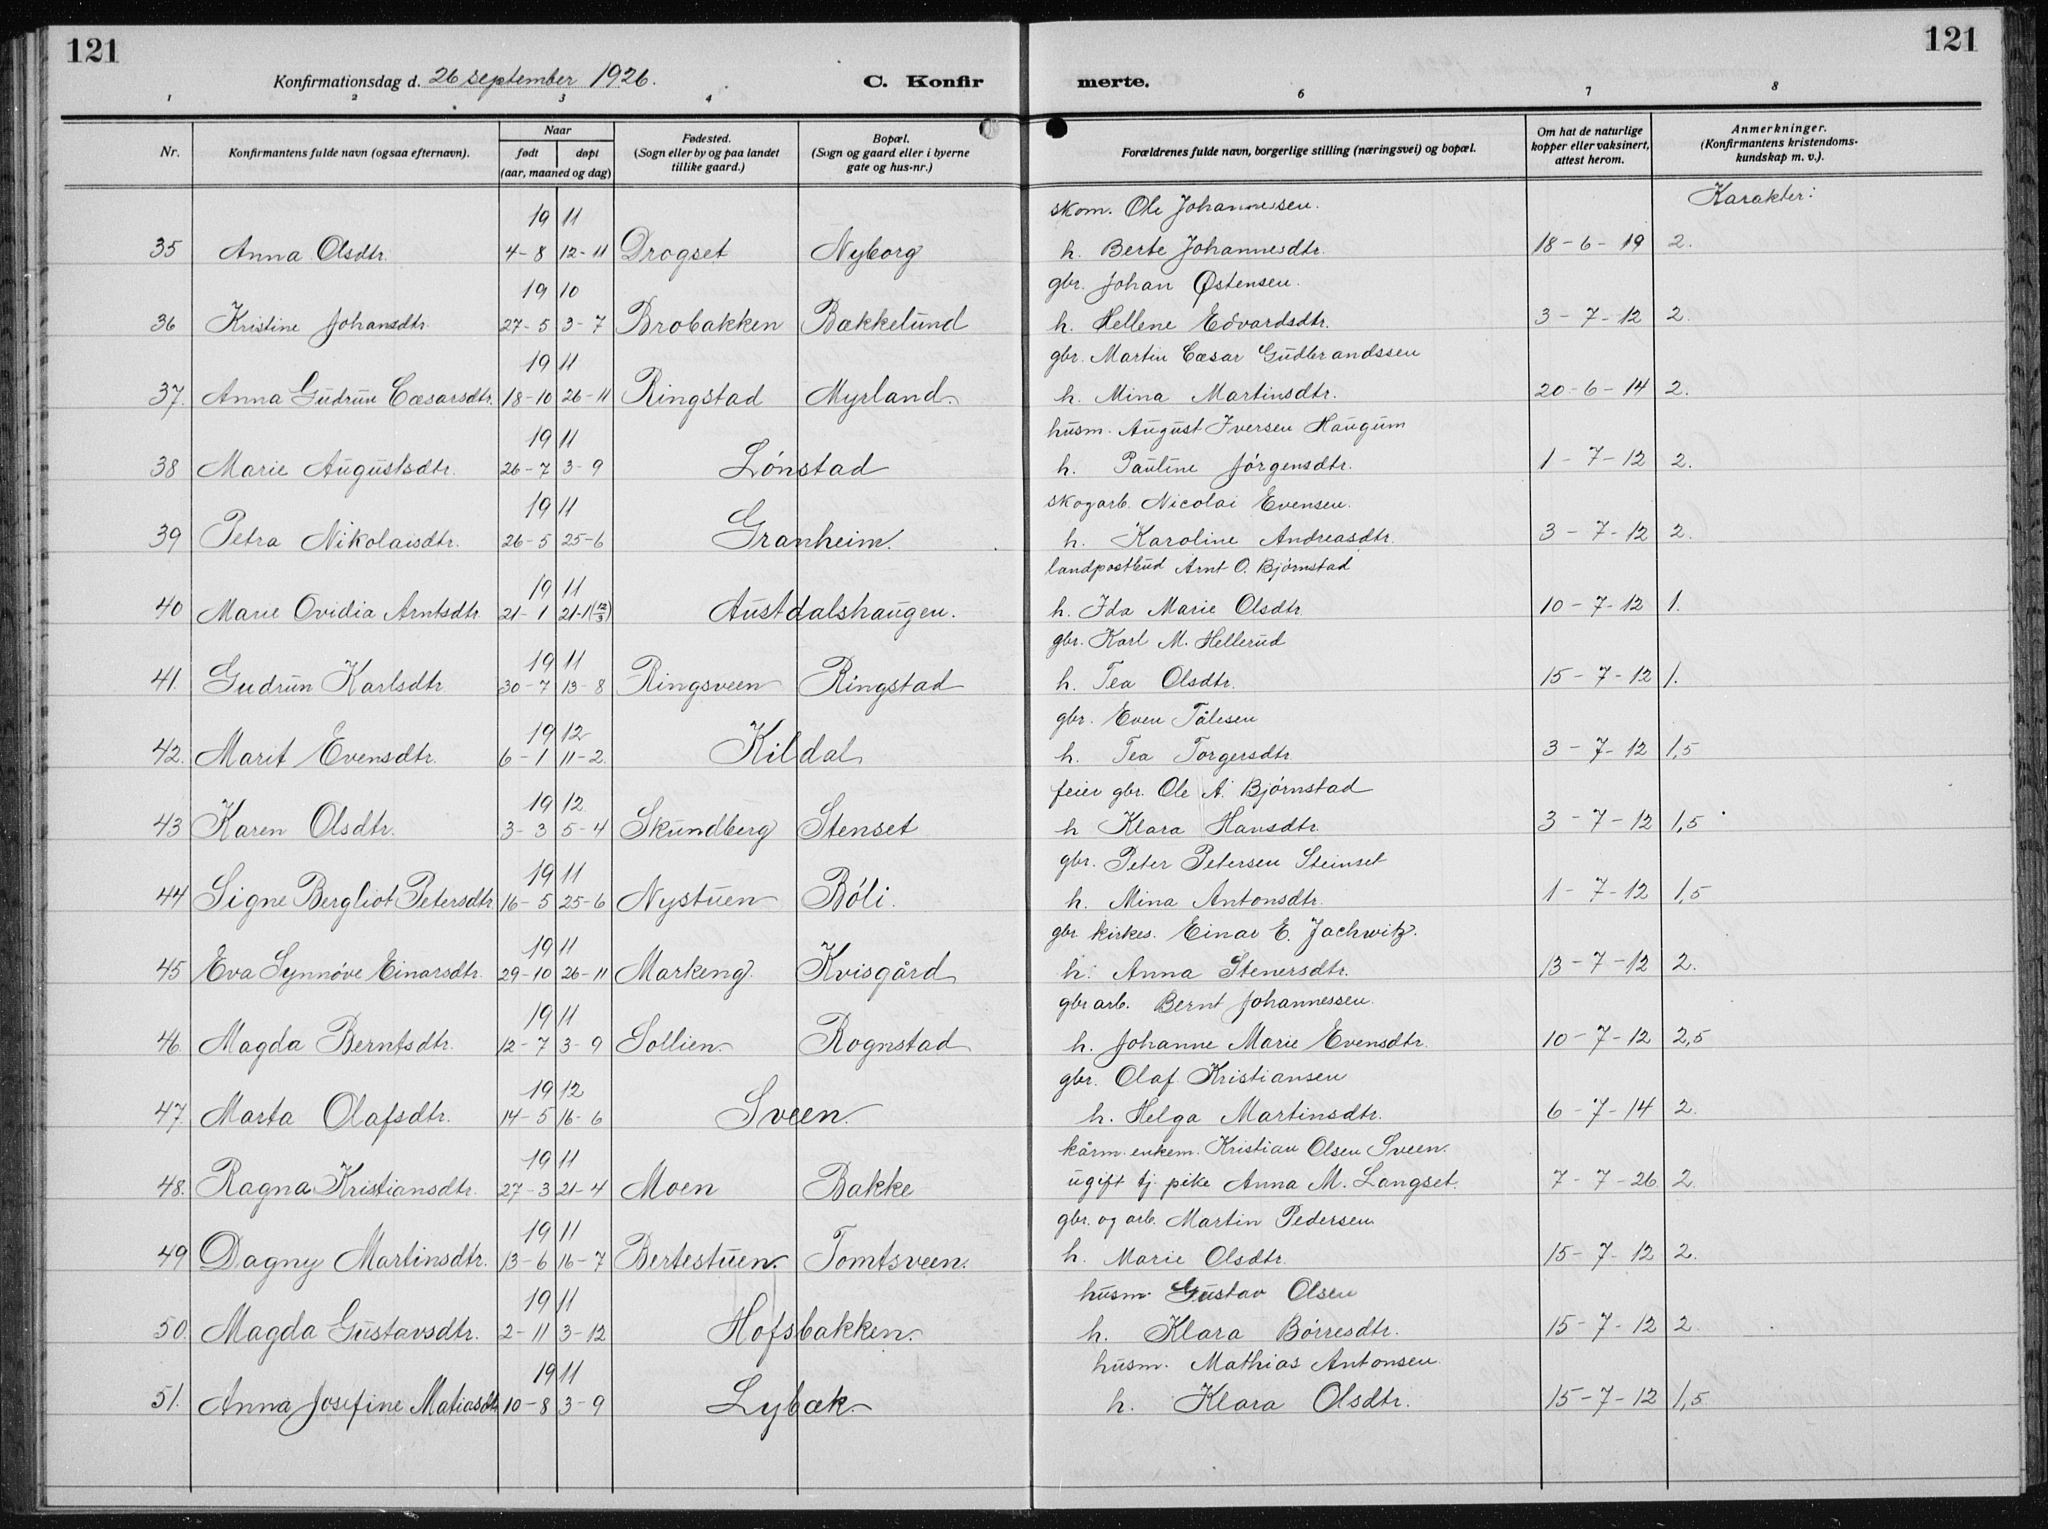 121
121
Konfirmationsdag d. 26 september 1926.
C. Konfir merte.
1 2 3 4 6 7 8
Nr.
Konfirmantens fulde navn (ogsaa efternavn).
Naar
født døpt
(aar, maaned og dag)
Fødested.
(Sogn eller by og paa landet
tillike gaard.)
Bopæl.
(Sogn og gaard eller i byerne
gate og hus-nr.)
Forældrenes fulde navn, borgerlige stilling (næringsvei) og bopæl.
Om hat de naturlige
kopper eller vaksinert,
attest herom.
Anmerkninger.
(Konfirmantens kristendoms-
kundskap m. v.).
Karakter:
19 11 skom. Ole Johannessen.
35 Anna Olsdtr. 4-8 12-11 Drogset Nyborg h. Berte Johannesdtr. 18-6-19 2.
19 10 gbr. Johan Østensen.
36 Kristine Johansdtr. 27-5 3-7 Brobakken Bækkelund h. Hellene Edvardsdtr. 3-7-12 2.
19 11 gbr. Martin Cæsar Gudbrandssen
37. Anna Gudrun Cæsarsdtr. 18-10 26-11 Ringstad Myrland. h. Mina Martinsdtr. 20-6-14 2.
19 11 husm. August Iversen Haugum
38 Marie Augustsdtr. 26-7 3-9 Lønstad h. Pauline Jørgensdtr. 1-7-12 2.
19 11 skogarb. Nicolai Evensen.
39 Petra Nikolaisdtr. 26-5 25-6 Granheim. h. Karoline Andreasdtr. 3-7-12 2.
19 11 landpostbud Arnt O. Bjørnstad
40 Marie Ovidia Arntsdtr. 21-1 21-1(12/3) Austdalshaugen. h. Ida Marie Olsdtr. 10-7-12 1.
19 11 gbr. Karl M. Hellerud
41. Gudrun Karlsdtr. 30-7 13-8 Ringsveen Ringstad h. Tea Olsdtr. 15-7-12 1.
19 12 gbr. Even Tålesen
42. Marit Evensdtr. 6-1 11-2. Kildal h. Tea Torgersdtr. 3-7-12 1,5
19 12 feier gbr. Ole A. Bjørnstad
43 Karen Olsdtr. 3-3 5-4 Skundberg Stenset h Klara Hansdtr. 3-7-12 1,5
19 11 gbr. Peter Petersen Steinset
44 Signe Bergliot Petersdtr. 16-5 25-6 Nystuen Bøli. h. Mina Antonsdtr. 1-7-12 1,5
19 11 gbr. kirkes. Einar E. Jachwitz.
45 Eva Synnøve Einarsdtr. 29-10 26-11 Markeng. Kvisgård h. Anna Stenersdtr. 13-7-12 2.
19 11 gbr arb. Bernt Johannessen.
46. Magda Berntsdtr. 12-7 3-9 Sollien. Rognstad h. Johanne Marie Evensdtr. 10-7-12 2,5
19 12 gbr. Olaf Kristiansen
47. Marta Olafsdtr. 14-5 16-6 Sveen. h. Helga Martinsdtr. 6-7-14 2.
19 11 kårm. enkem. Kristian Olsen Sveen.
48. Ragna Kristiansdtr. 27-3 21-4 Moen Bakke ugift tj. pike Anna M. Langset. 7-7-26 2.
19 11 gbr. og arb. Martin Pedersen
49 Dagny Martinsdtr. 13-6 16-7 Bertestuen. Tomtsveen. h. Marie Olsdtr. 15-7-12 2.
19 11 husm. Gustav Olsen
50. Magda Gustavsdtr. 2-11 3-12 Hofsbakken. h. Klara Børresdtr. 15-7-12 2.
19 11 husm. Mathias Antonsen
51. Anna Josefine Matiasdtr. 10-8 3-9 Lybæk. h. Klara Olsdtr. 15-7-12 1,5.